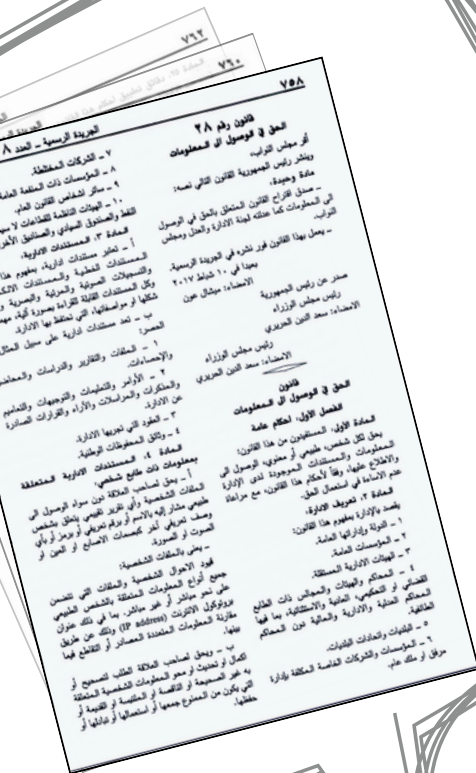 ٧٦٢
٧٦٠
٧٥٨
الجريدة الرسمية ـ العدد ٨
قانون رقم ٢٨
الحق في الوصول الى المعلومات
أقر مجلس النواب،
وينشر رئيس الجمهورية القانون التالي نصه:
مادة وحيدة:
ـ صدق اقتراح القانون المتعلق بالحق في الوصول
الى المعلومات كما عدلته لجنة الادارة والعدل ومجلس
النواب.
ـ يعمل بهذا القانون فور نشره في الجريدة الرسمية.
بعبدا في ١٠ شباط ٢٠١٧
الامضاء: ميشال عون
صدر عن رئيس الجمهورية
رئيس مجلس الوزراء
الامضاء: سعد الدين الحريري
رئيس مجلس الوزراء
الامضاء: سعد الدين الحريري
قانون
الحق في الوصول الى المعلومات
الفصل الأول: أحكام عامة
المادة الأولى: المستفيدون من هذا القانون:
يحق لكل شخص، طبيعي أو معنوي، الوصول الى
المعلومات والمستندات الموجودة لدى الإدارة
والاطلاع عليها، وفقاً لأحكام هذا القانون، مع مراعاة
عدم الاساءة في استعمال الحق.
المادة ٢. تعريف الادارة:
يقصد بالإدارة بمفهوم هذا القانون:
١ ـ الدولة وإداراتها العامة.
٢ ـ المؤسسات العامة.
٣ ـ الهيئات الادارية المستقلة.
٤ ـ المحاكم والهيئات والمجالس ذات الطابع
القضائي أو التحكيمي، العادية والاستثنائية، بما فيها
المحاكم العدلية والادارية والمالية دون المحاكم
الطائفية.
٥ ـ البلديات واتحادات البلديات.
٦ ـ المؤسسات والشركات الخاصة المكلفة بإدارة
مرفق أو ملك عام.
٧ ـ الشركات المختلطة.
٨ ـ المؤسسات ذات المنفعة العامة
٩ ـ سائر اشخاص القانون العام.
١٠ ـ الهيئات الناظمة للقطاعات
المادة ٣. المستندات الادارية:
أ ـ تعتبر مستندات إدارية، بمفهوم هذا
المستندات الخطية والمستندات
والتسجيلات الصوتية والمرئية والبصرية
وكل المستندات القابلة للقراءة بصورة آلية، مهما
شكلها أو مواصفاتها، التي تحتفظ بها الادارة.
ب ـ تعد مستندات ادارية على سبيل المثال
الحصر:
١ ـ الملفات والتقارير والدراسات
والإحصاءات.
٢ ـ الأوامر والتعليمات والتوجيهات والتعاميم
والمذكرات والمراسلات والآراء والقرارات الصادرة
عن الادارة.
٣ ـ العقود التي تجريها الادارة.
٤ ـ وثائق المحفوظات الوطنية.
المادة ٤. المستندات الادارية المتعلقة
بمعلومات ذات طابع شخصي:
أ ـ يحق لصاحب العلاقة دون سواه الوصول الى
الملفات الشخصية وأي تقرير تقييمي يتعلق بشخص
طبيعي مشار إليه بالاسم أو برقم تعريفي أو برمز أو بأي
وصف تعريفي آخر كبصمات الاصابع أو العين أو
الصوت أو الصورة.
ـ يعنى بالملفات الشخصية:
قيود الاحوال الشخصية والملفات التي تتضمن
جميع أنواع المعلومات المتعلقة بالشخص الطبيعي
على نحو مباشر أو غير مباشر، بما في ذلك عنوان
بروتوكول الانترنت (IP address) وذلك عن طريق
مقارنة المعلومات المتعددة المصادر أو التقاطع فيما
بينها.
ب ـ ويحق لصاحب العلاقة الطلب لتصحيح أو
اكمال أو تحديث أو محو المعلومات الشخصية المتعلقة
به غير الصحيحة أو الناقصة أو الملتبسة أو القديمة أو
التي يكون من الممنوع جمعها أو استعمالها أو تبادلها أو
حفظها.